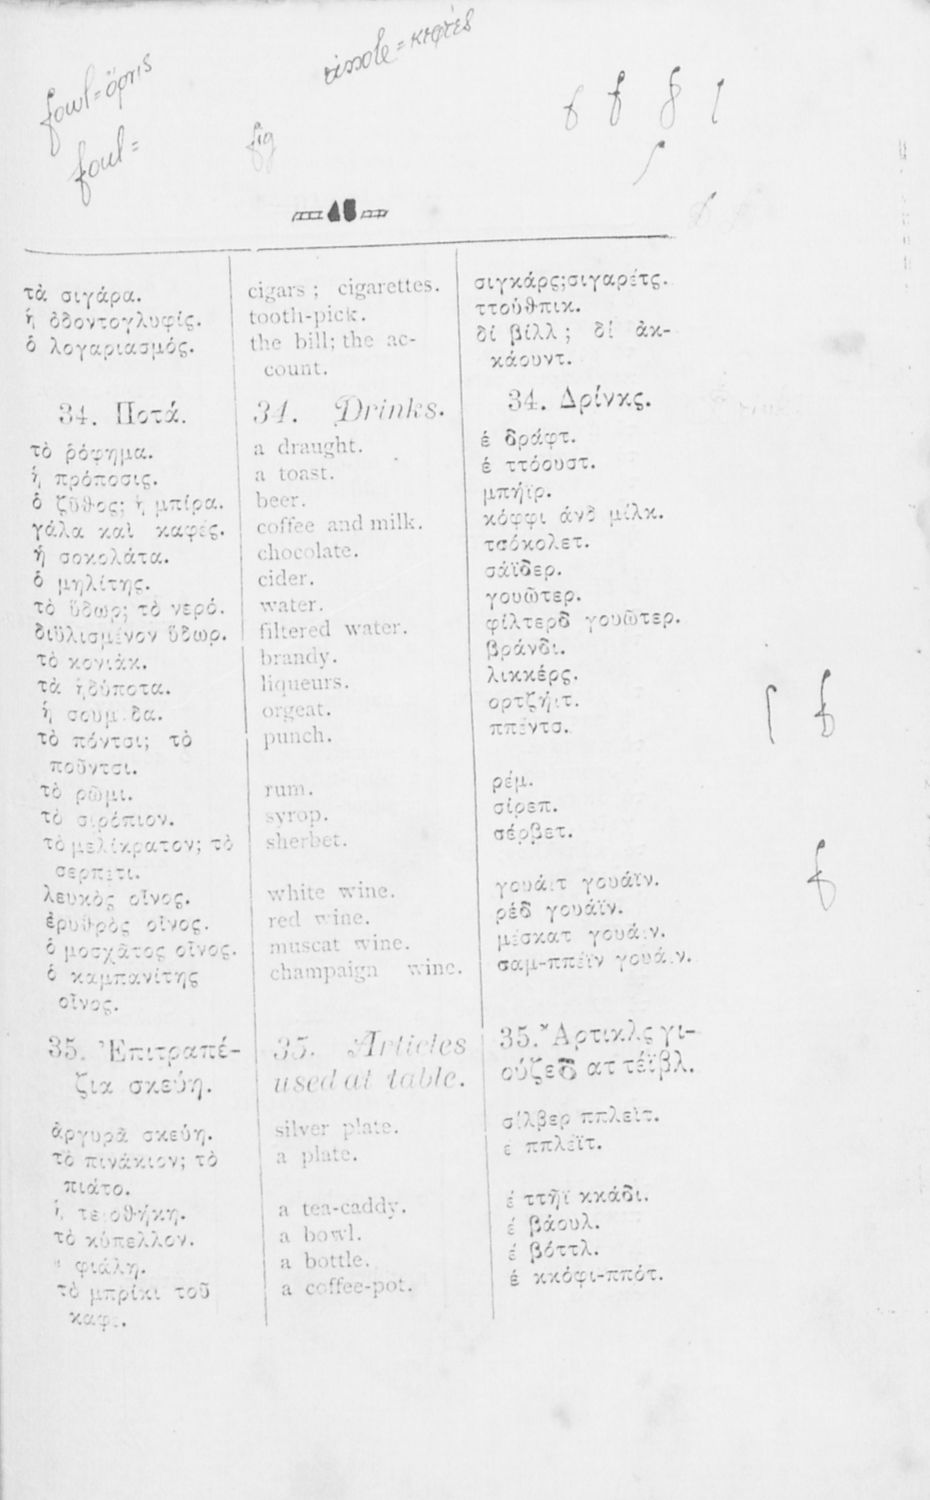 fowl = ὄρνις
foul =
rissole = κεφτές
fig
f f f
f
τὰ σιγάρα. cigars ; cigarettes. σιγκάρς;σιγαρέτς.
ἡ ὀδοντογλυφίς. tooth-pick. ττούθπικ.
ὁ λογαριασμός. the bill; the ac- δί βίλλ ; δί ἀκ-
count. κάουντ.
34. Ποτά. 34. Drinks. 34. Δρίνκς.
τὸ ῥόφημα. a draught. έ δράφτ.
ἡ πρόποσις. a toast. έ ττόουστ.
ὁ ζῦθος; ἡ μπίρα. beer. μπήϊρ.
γάλα καὶ καφές. coffee and milk. κόφφι άνδ μίλκ.
ἡ σοκολάτα. chocolate. τσόκολετ.
ὁ μηλίτης. cider. σάϊδερ.
τὸ ὕδωρ; τὸ νερό. water. γουῶτερ.
διϋλισμένον ὕδωρ. filtered water. φίλτερδ γουῶτερ.
τὸ κονιὰκ. brandy. βράνδι.
τὰ ἡδύποτα. liqueurs. λικκέρς.
ἡ orgeat. ορτζήιτ.
τὸ πόντσι; τὸ punch. ππέντσ.
ποῦντσι.
τὸ ρῶμι. rum. ρέμ.
τὸ σιρόπιον. syrop. σίρεπ.
τὸ μελίκρατον; τὸ sherbet. σέρβετ.
σερπέτι.
λευκὸς οἶνος. white wine. γουάιτ γουάϊν.
ἐρυθρὸς οἶνος. red wine. ρέδ γουάϊν.
ὁ μοσχᾶτος οἶνος. muscat wine. μέσκατ γουάιν.
ὁ καμπανίτης champaign wine. σαμ-ππέϊν γουάιν.
οἶνος.
35. Ἐπιτραπέ- 35. Articles 35. Ἄρτικλς γι-
ζια σκεύη. used at table. ούζεδ ατ τέϊβλ.
ἀργυρᾶ σκεύη. silver plate. σίλβερ ππλεϊτ.
τὸ πινάκιον; τὸ a plate. έ ππλέϊτ.
πιάτο.
ἡ τειοθήκη. a tea-caddy. έ ττῆϊ κκάδι.
τὸ κύπελλον. a bowl. έ βάουλ.
φιάλη. a bottle. έ βόττλ.
τὸ μπρίκι τοῦ a coffee-pot. έ κκόφι-ππότ.
καφέ.